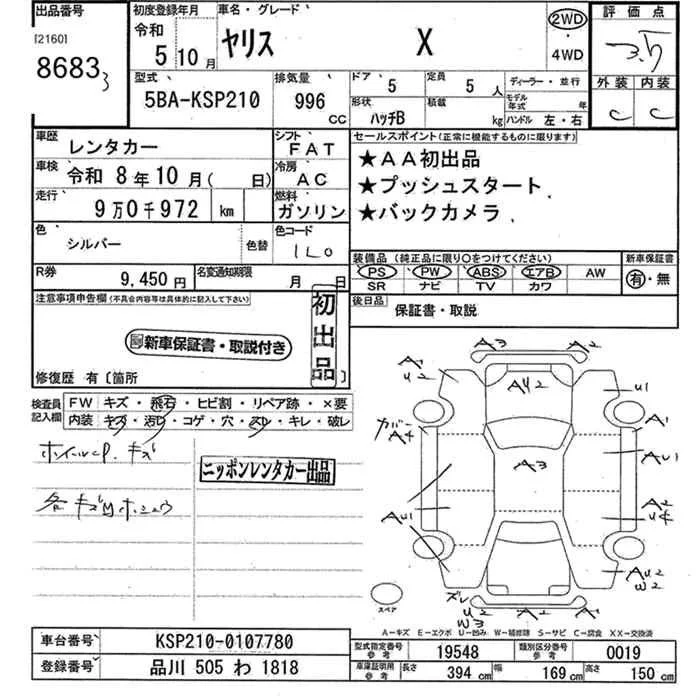 出品番号
[2160]
8683 3
初度登録年月
令和
5 10月
車名・グレード
ヤリス X
2WD
・
4WD
評価点
3.5
外装 内装
C C
型式
5BA-KSP210
排気量
996 CC
ドア 5
定員 5 人
形状 ハッチB
積載 kg
ディーラー・並行
モデル年式 年
ハンドル 左・右
車歴 レンタカー
シフト FAT
車検 令和 8年10月( 日)
冷房 AC
走行 9万0千972 km
燃料 ガソリン
色 シルバー 色替
色コード 1L0
R券 9,450円
名変通知期限 月 日
セールスポイント(正常に機能するものに限ります)
★AA初出品
★プッシュスタート
★バックカメラ
装備品 (純正品に限り○をつけてください)
PS PW ABS エアB AW
SR ナビ TV カワ
新車保証書
有・無
後日品 保証書・取説
注意事項申告欄(不具合内容等は具体的に記入して下さい)
新車保証書・取説付き
初出品
修復歴 有〔箇所
検査員記入欄
FW キズ・飛石・ヒビ割・リペア跡・×要
内装 キズ・汚レ・コゲ・穴・スレ・キレ・破レ
ニッポンレンタカー出品
A3 A2
A2 U2
AU2
U1
カバー A4
A1
AU1
A3
A2
U4
AU1
AU2
A2
ズレ
U2
W3
A2
スペア
A-キズ E-エクボ U-凹み W-補修跡 S-サビ C-腐食 XX-交換済
車台番号 KSP210-0107780
登録番号 品川 505 わ 1818
型式指定番号 参考 19548
類別区分番号 参考 0019
車庫証明用 参考 長さ 394 cm 幅 169 cm 高さ 150 cm